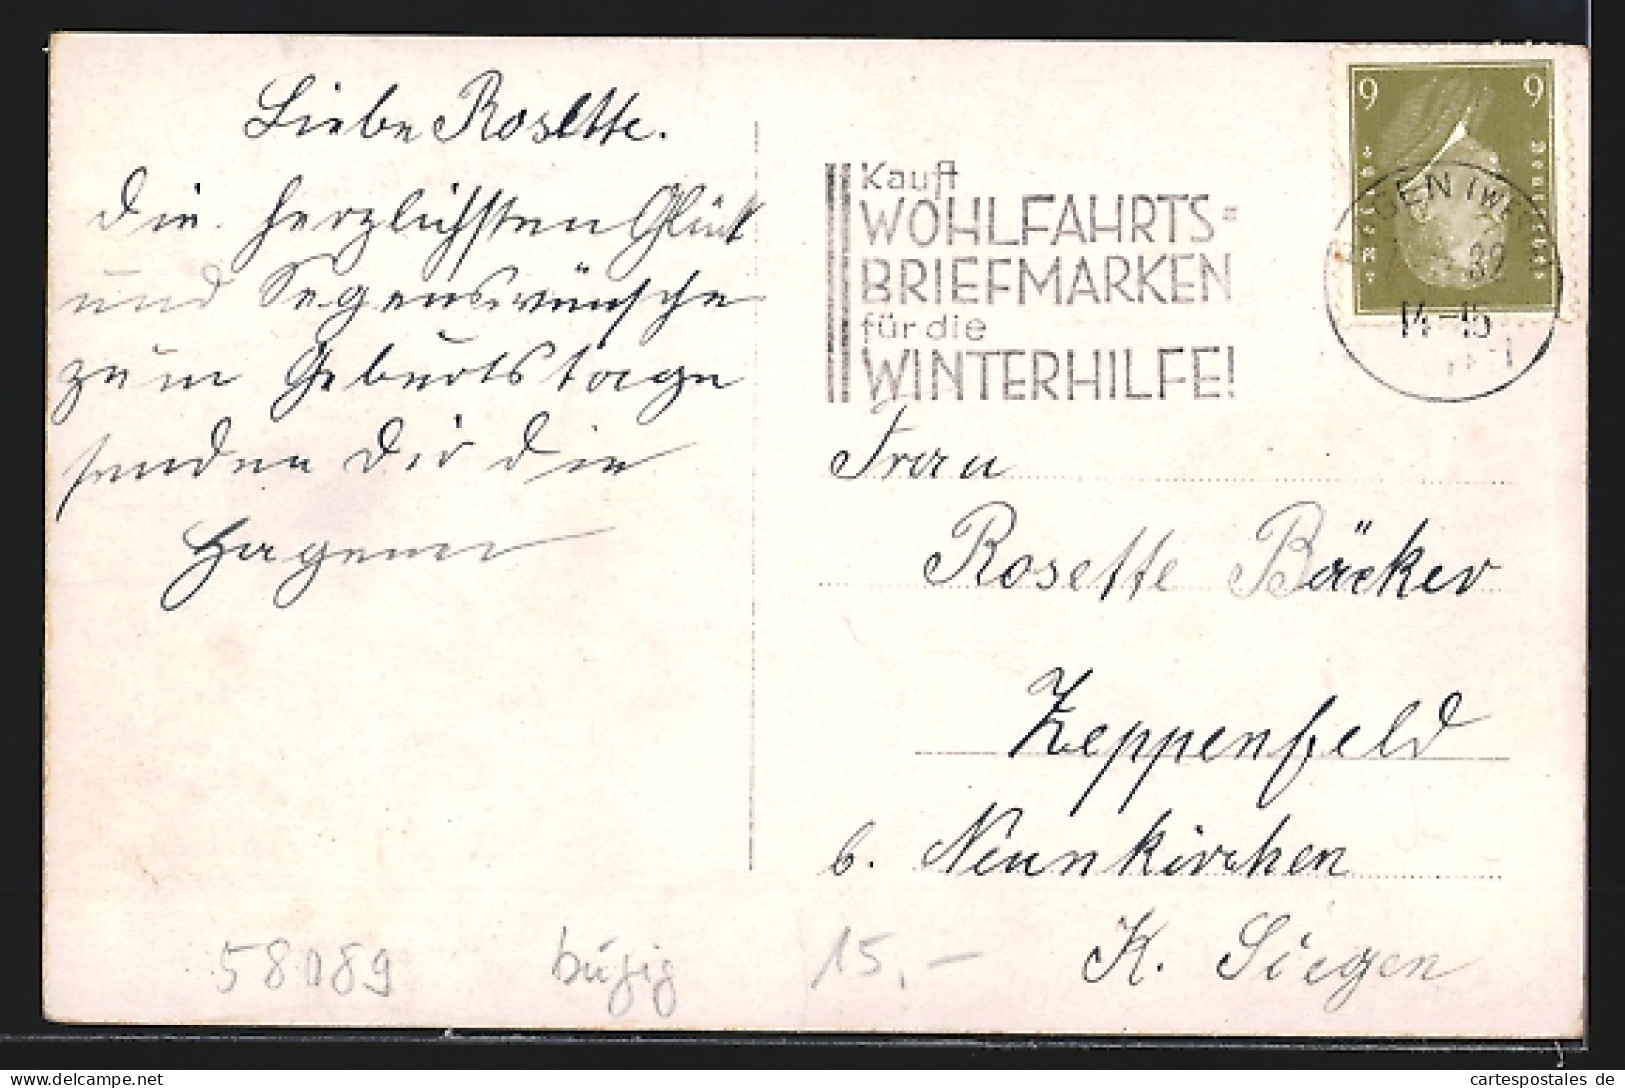 Liebe Rosette.
die herzlichsten Glück
und Segenswünsche
zum Geburtstage
senden Dir die
Hagener
Kauft
WOHLFAHRTS=
BRIEFMARKEN
für die
WINTERHILFE!
9 9
Deutsches Reich
32
14-15
Frau
Rosette Bäcker
Zeppenfeld
b. Neunkirchen
K. Siegen
58089
15,-
cartespostales de